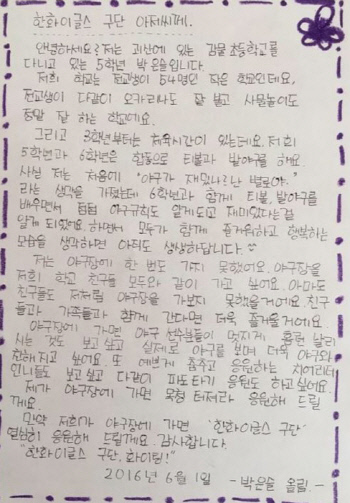 한화이글스 구단 아저씨께.
안녕하세요? 저는 괴산에 있는 감물초등학교를
다니고 있는 5학년 박은솔입니다.
저희 학교는 전교생이 54명인 작은 학교인데요,
전교생이 다같이 오카리나도 잘 불고 사물놀이도
정말 잘 하는 학교에요.
그리고 3학년부터는 체육시간이 있는데요. 저희
5학년과 6학년은 합동으로 티볼과 발야구를 해요.
사실 저는 처음에 "야구가 재밌나? 난 별로야."
라는 생각을 가졌는데 6학년과 함께 티볼, 발야구를
배우면서 점점 야구규칙도 알게되고 재미있다는걸
알게 되었어요. 하면서 모두가 함께 즐거워하고 행복하는
모습을 생각하면 아직도 생생하답니다.
저는 야구장에 한 번도 가지 못했어요. 야구장을
저희 학교 친구들 모두와 같이 가고 싶어요. 아마도
친구들도 저처럼 야구장을 가보지 못했을거에요. 친구
들과 가족들과 함께 간다면 더욱 즐거울거에요.
야구장에 가면 야구 선수분들이 멋지게 홈런 날리
시는 것도 보고 싶고 실제로 야구를 보며 더욱 야구와
친해지고 싶어요. 또 예쁘게 춤추고 응원하는 치어리더
언니들도 보고싶고 다같이 파도타기 응원도 하고싶어요.
제가 야구장에 가면 목청 터져라 응원해 드릴
게요.
만약 저희가 야구장에 가면 '한화이글스 구단'
열심히 응원해 드릴게요. 감사합니다.
"한화이글스 구단, 화이팅!"
2016년 6월 1일 -박은솔 올림.-